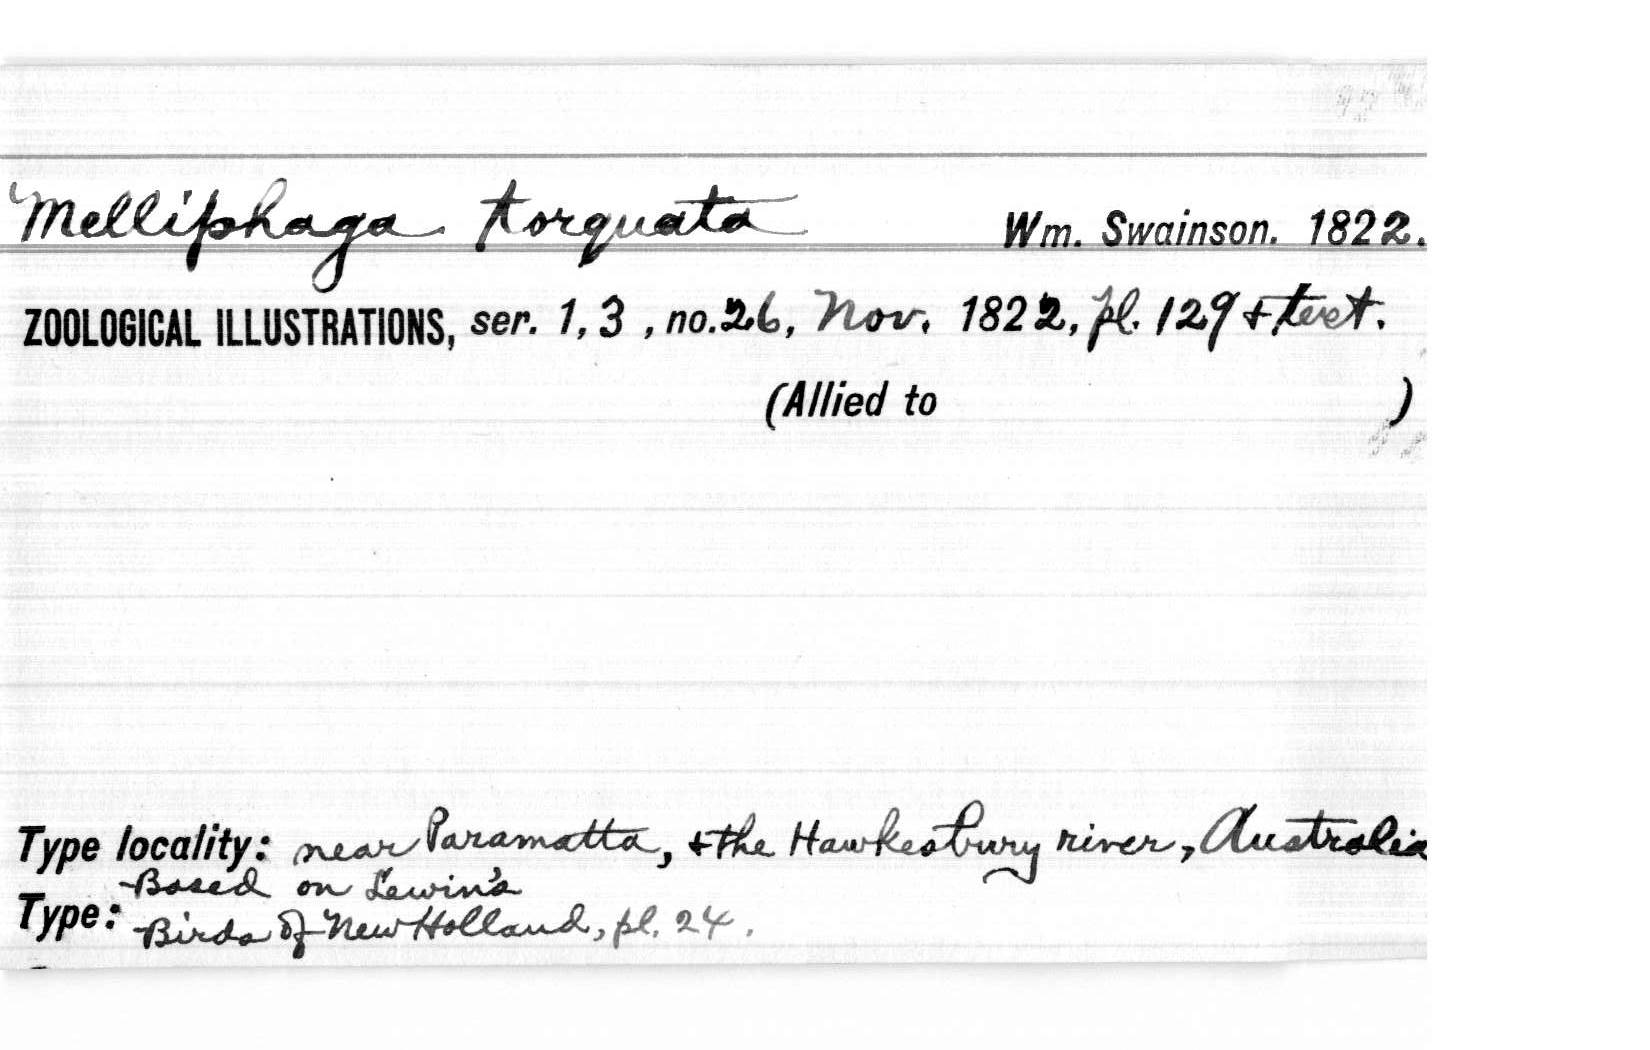 Melliphaga torquata Wm. Swainson. 1822.
ZOOLOGICAL ILLUSTRATIONS, ser. 1, 3, no. 26, Nov. 1822, pl. 129 & text.
(Allied to )
Type locality: near Paramatta, & the Hawkesbury river, Australia
Based on Lewin's
Type: Birds of New Holland, pl. 24.